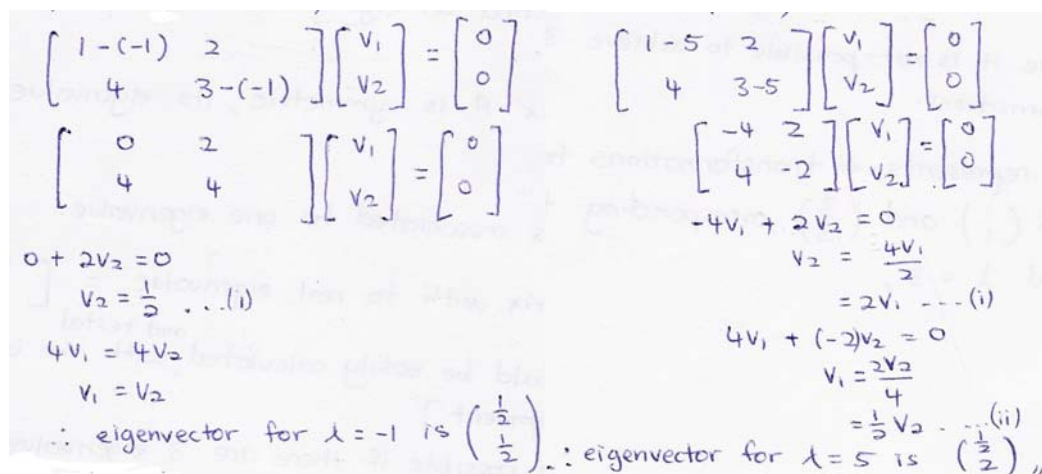 [ 1-(-1) 2 ] [ v₁ ] = [ 0 ]
[ 4 3-(-1) ] [ v₂ ] [ 0 ]
[ 0 2 ] [ v₁ ] = [ 0 ]
[ 4 4 ] [ v₂ ] [ 0 ]
0 + 2v₂ = 0
v₂ = 1/2 ...(i)
4v₁ = 4v₂
v₁ = v₂
∴ eigenvector for λ = -1 is ( 1/2 1/2 )
[ 1-5 2 ] [ v₁ ] = [ 0 ]
[ 4 3-5 ] [ v₂ ] [ 0 ]
[ -4 2 ] [ v₁ ] = [ 0 ]
[ 4 -2 ] [ v₂ ] [ 0 ]
-4v₁ + 2v₂ = 0
v₂ = 4v₁/2
= 2v₁ ....(i)
4v₁ + (-2)v₂ = 0
v₁ = 2v₂/4
= 1/2 v₂ ....(ii)
∴ eigenvector for λ = 5 is ( 1/2 2 ) ,,